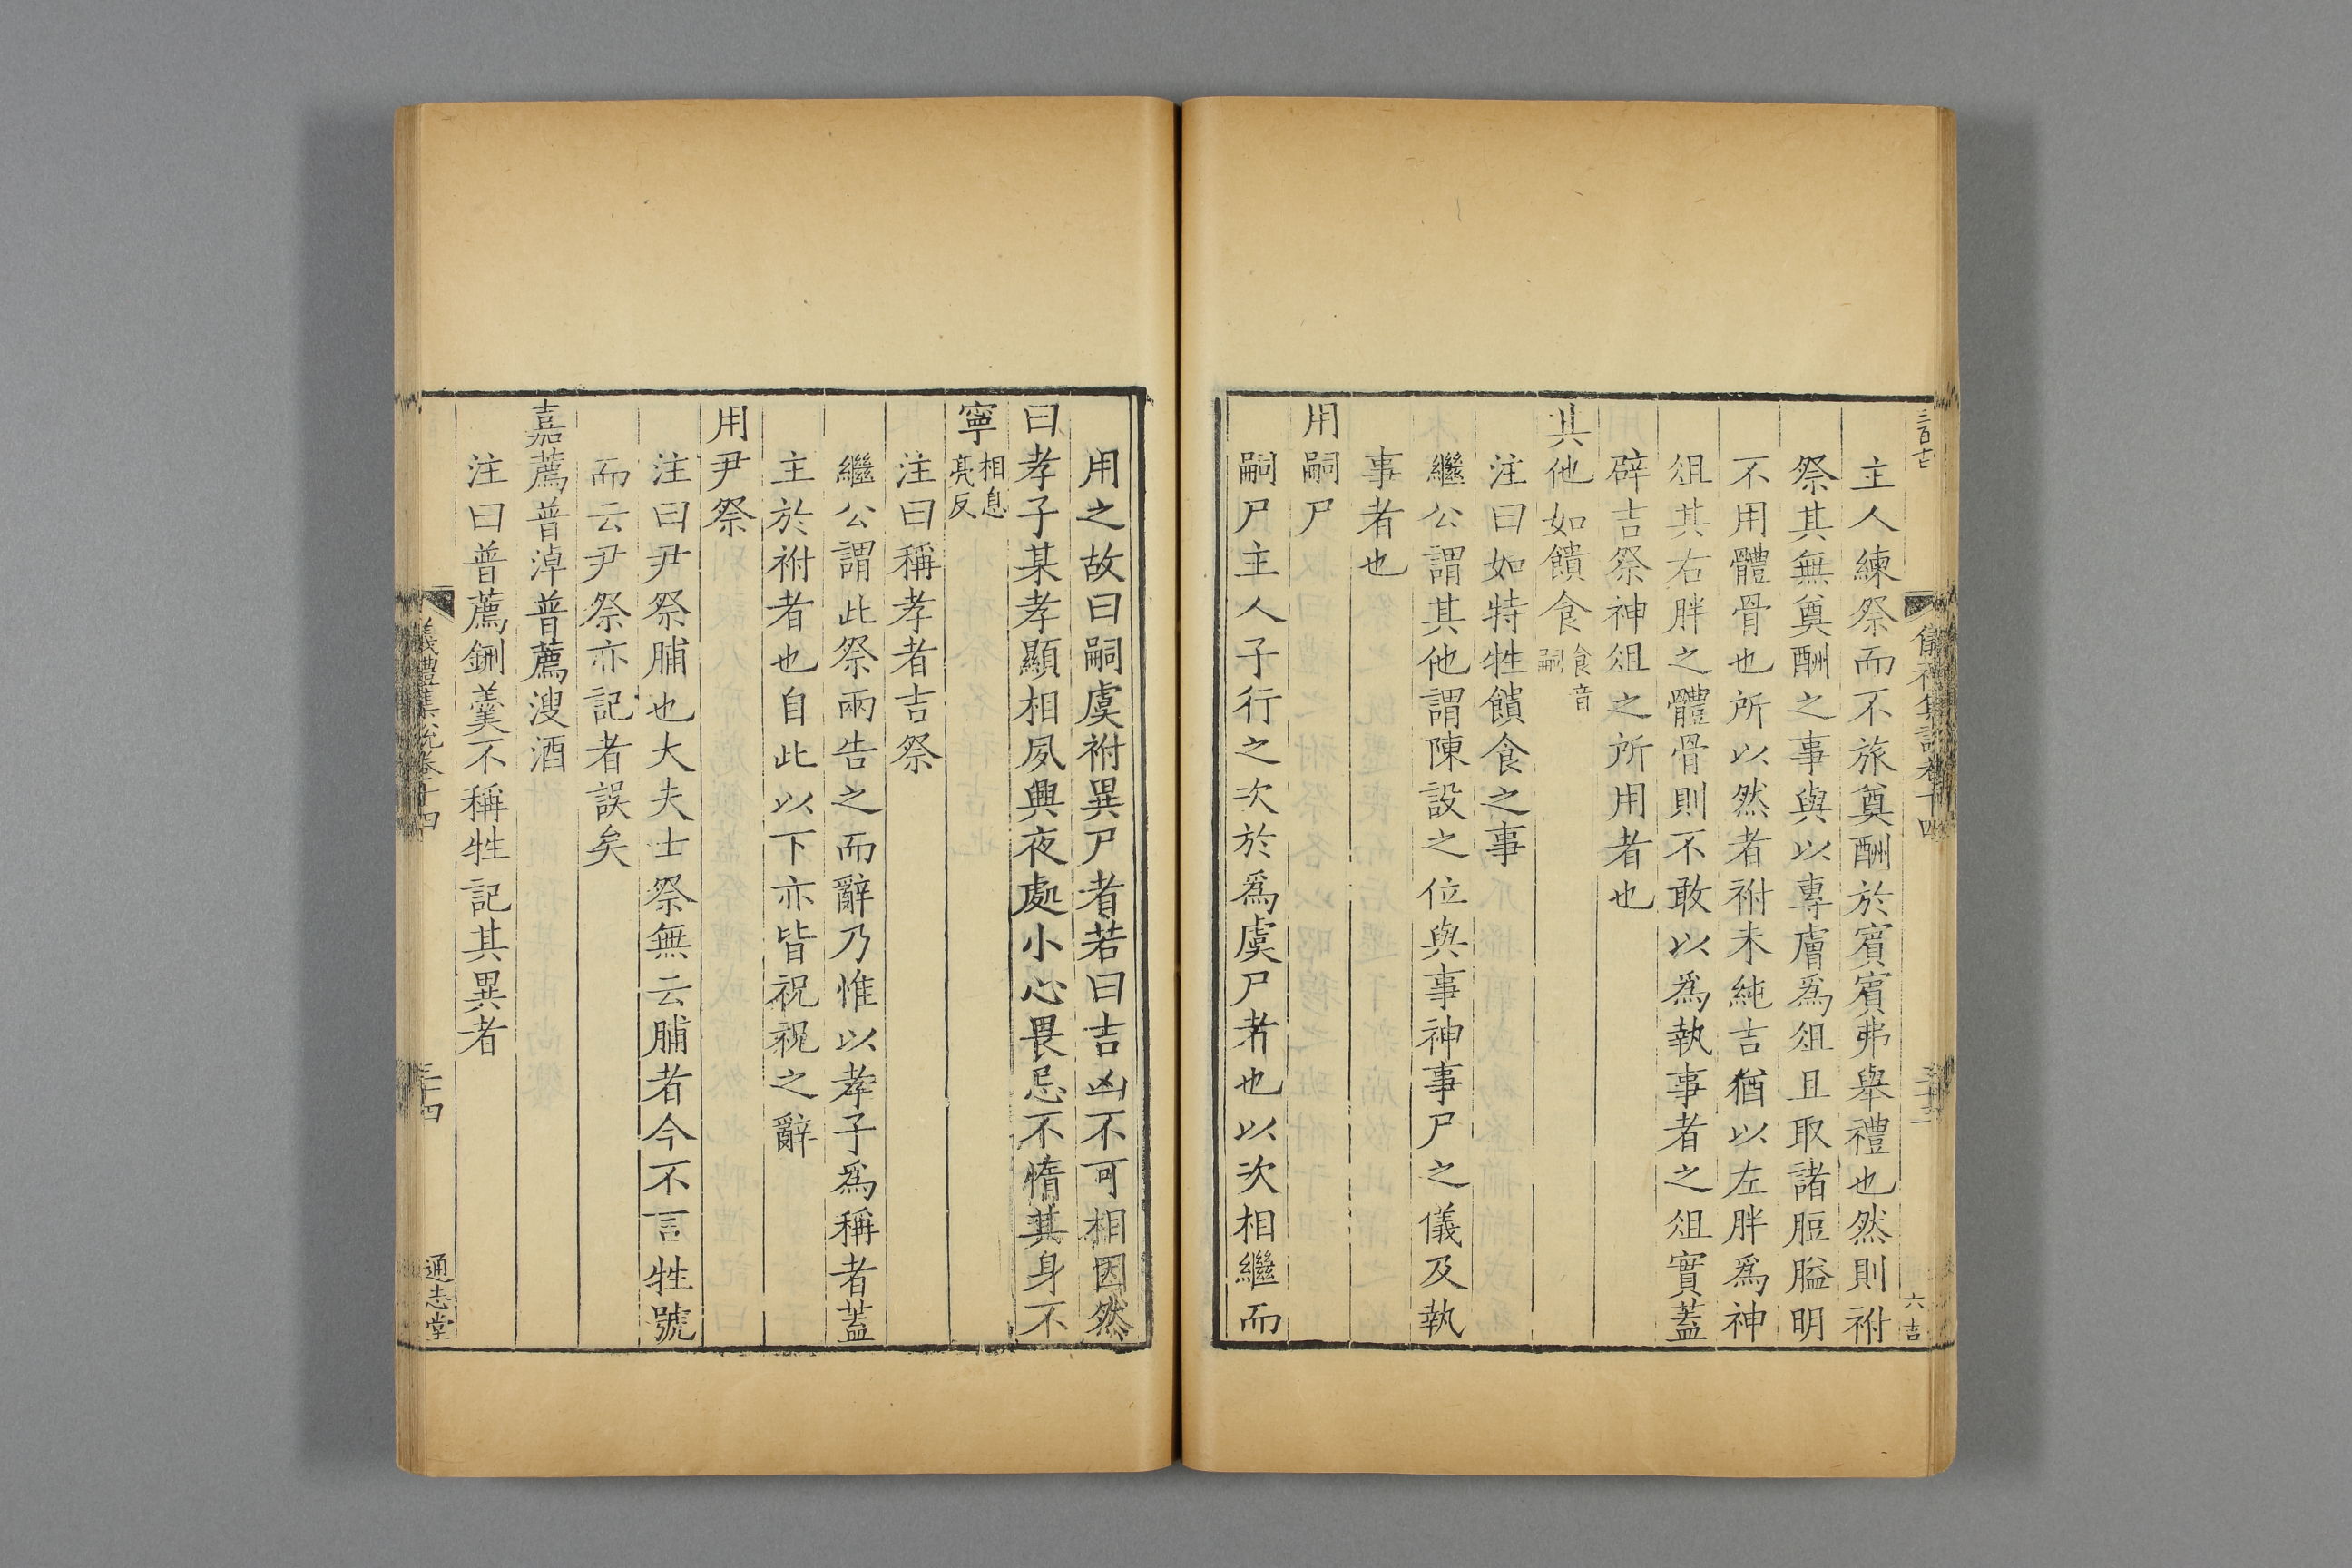 主人練祭而不旅奠酬於賓賓弗舉禮也然則祔
祭其無奠酬之事與以專膚爲俎且取諸脰膉明
不用體骨也所以然者祔未純吉猶以左胖爲神
俎其右胖之體骨則不敢以爲執事者之俎實蓋
辟吉祭神俎之所用者也
其他如饋食食音嗣
注曰如特牲饋食之事
繼公謂其他謂陳設之位與事神事尸之儀及執
事者也
用嗣尸
嗣尸主人子行之次於爲虞尸者也以次相繼而
用之故曰嗣虞祔異尸者若曰吉凶不可相因然
曰孝子某孝顯相夙興夜處小心畏忌不惰其身不
寧相息亮反
注曰稱孝者吉祭
繼公謂此祭兩告之而辭乃惟以孝子爲稱者蓋
主於祔者也自此以下亦皆祝祝之辭
用尹祭
注曰尹祭脯也大夫士祭無云脯者今不言牲號
而云尹祭亦記者誤矣
嘉薦普淖普薦溲酒
注曰普薦鉶羹不稱牲記其異者
儀禮集說卷十四
三十四
通志堂